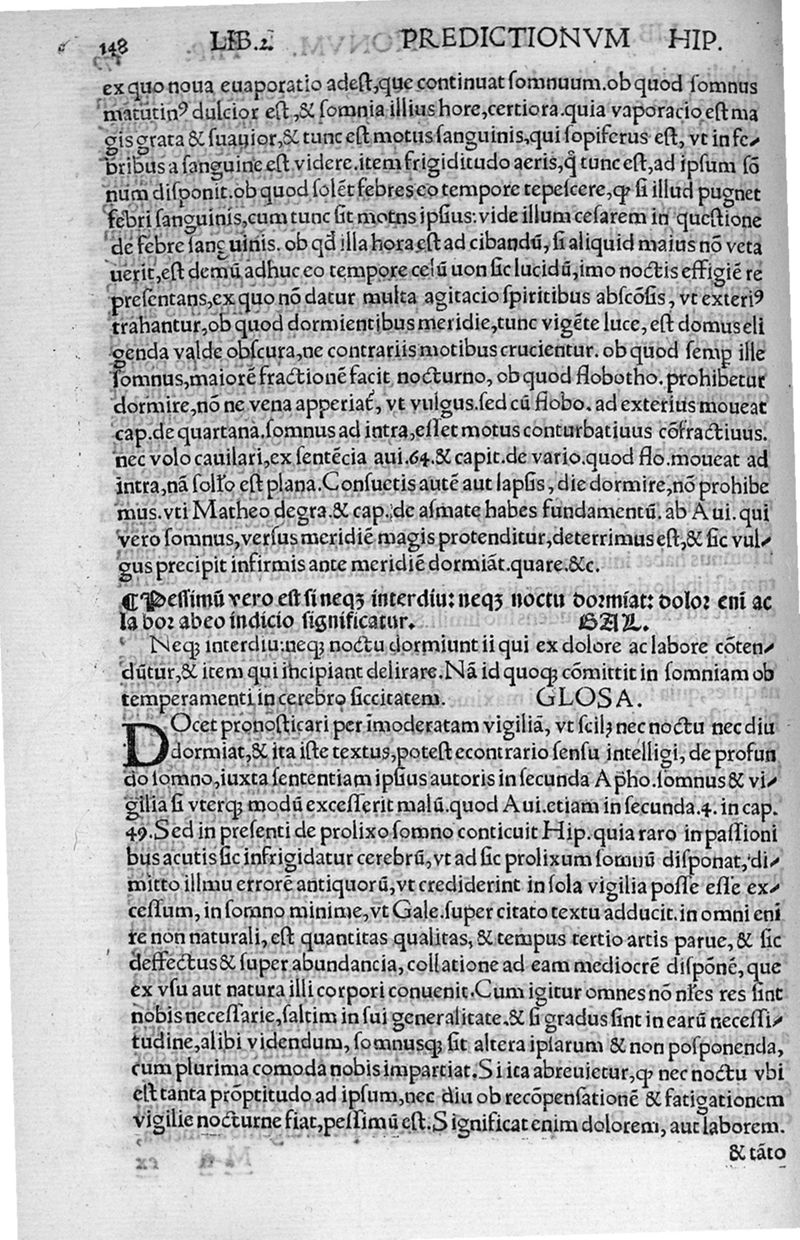 148 LIB.2. PREDICTIONVM HIP.
ex quo noua euaporatio adest,que continuat somnuum.ob quod somnus
matutinꝰ dulcior est,& somnia illius hore,certiora.quia vaporacio est ma
gis grata & suauior,& tunc est motus sanguinis,qui sopiferus est, vt in fe⸗
bribus a sanguine est videre.item frigiditudo aeris,q̃ tunc est,ad ipsum sõ
num disponit.ob quod solẽt febres eo tempore tepescere,qꝫ si illud pugnet
febri sanguinis,cum tunc sit motns ipsius: vide illum cesarem in questione
de febre sanguinis. ob qđ illa hora est ad cibandũ, si aliquid maius nõ veta
uerit,est demũ adhuc eo tempore celũ uon sic lucidũ,imo noctis effigiẽ re
presentans,ex quo nõ datur multa agitacio spiritibus abscõsis, vt exteriꝰ
trahantur,ob quod dormientibus meridie,tunc vigẽte luce, est domus eli
genda valde obscura,ne contrariis motibus crucientur. ob quod semp ille
somnus,maiorẽ fractionẽ facit nocturno, ob quod flobotho. prohibetur
dormire,nõ ne vena apperiat᷑, vt vulgus.sed cũ flobo. ad exterius moueat
cap.de quartana.somnus ad intra,esset motus conturbatiuus cõfractiuus.
nec volo cauilari,ex sentẽcia aui.64.& capit.de vario.quod flo.moueat ad
intra,nã solr̃o est plana.Consuetis autẽ aut lapsis, die dormire,nõ prohibe
mus.vti Matheo degra.& cap.de asmate habes fundamentũ. ab Aui. qui
vero somnus,versus meridiẽ magis protenditur,deterrimus est,& sic vul⸗
gus precipit infirmis ante meridiẽ dormiãt.quare.&c.
¶Pessimũ vero est si neqꝫ interdiu: neqꝫ noctu dormiat: dolor enĩ ac
labor ab eo indicio significatur. GAL.
Neqꝫ interdiu:neqꝫ noctu dormiunt ii qui ex dolore ac labore cõten⸗
dũtur,& item qui incipiant delirare.Nã id quoqꝫ cõmittit in somniam ob
temperamenti in cerebro siccitatem. GLOSA.
DOcet pronosticari per ĩmoderatam vigiliã, vt scilꝫ nec noctu nec diu
dormiat,& ita iste textus,potest econtrario sensu intelligi, de profun
do somno,iuxta sententiam ipsius autoris in secunda Apho.somnus & vi⸗
gilia si vterqꝫ modũ excesserit malũ.quod Aui.etiam in secunda.4. in cap.
49.Sed in presenti de prolixo somno conticuit Hip.quia raro in passioni
bus acutis sic infrigidatur cerebrũ,vt ad sic prolixum somnũ disponat,di⸗
mitto illmu errorẽ antiquorũ,vt crediderint in sola vigilia posse esse ex⸗
cessum, in somno minime,vt Gale.super citato textu adducit.in omni eni
re non naturali, est quantitas qualitas, & tempus tertio artis parue, & sic
deffectus & super abundancia, collatione ad eam mediocrẽ dispõnẽ, que
ex vsu aut natura illi corpori conuenit.Cum igitur omnes nõ nr̃es res sint
nobis necessarie,saltim in sui generalitate.& si gradus sint in earũ necessi⸗
tudine,alibi videndum, somnusqꝫ sit altera ipsarum & non posponenda,
cum plurima comoda nobis impartiat.Si ita abreuietur,qꝫ nec noctu vbi
est tanta prõptitudo ad ipsum,nec diu ob recõpensationẽ & fatigationem
vigilie nocturne fiat,pessimũ est.Significat enim dolorem, aut laborem.
& tãto